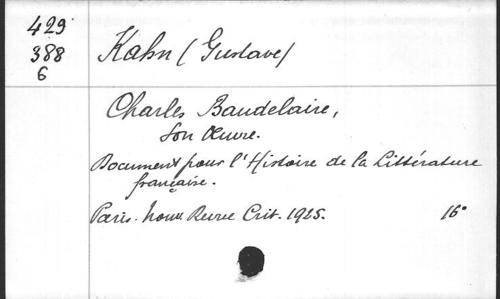 429
388
6
Kahn (Gustave)
Charles Baudelaire,
Son Œuvre.
Document pour l'Histoire de la Littérature
française.
Paris. Nouv Revue Crit. 1925. 16°